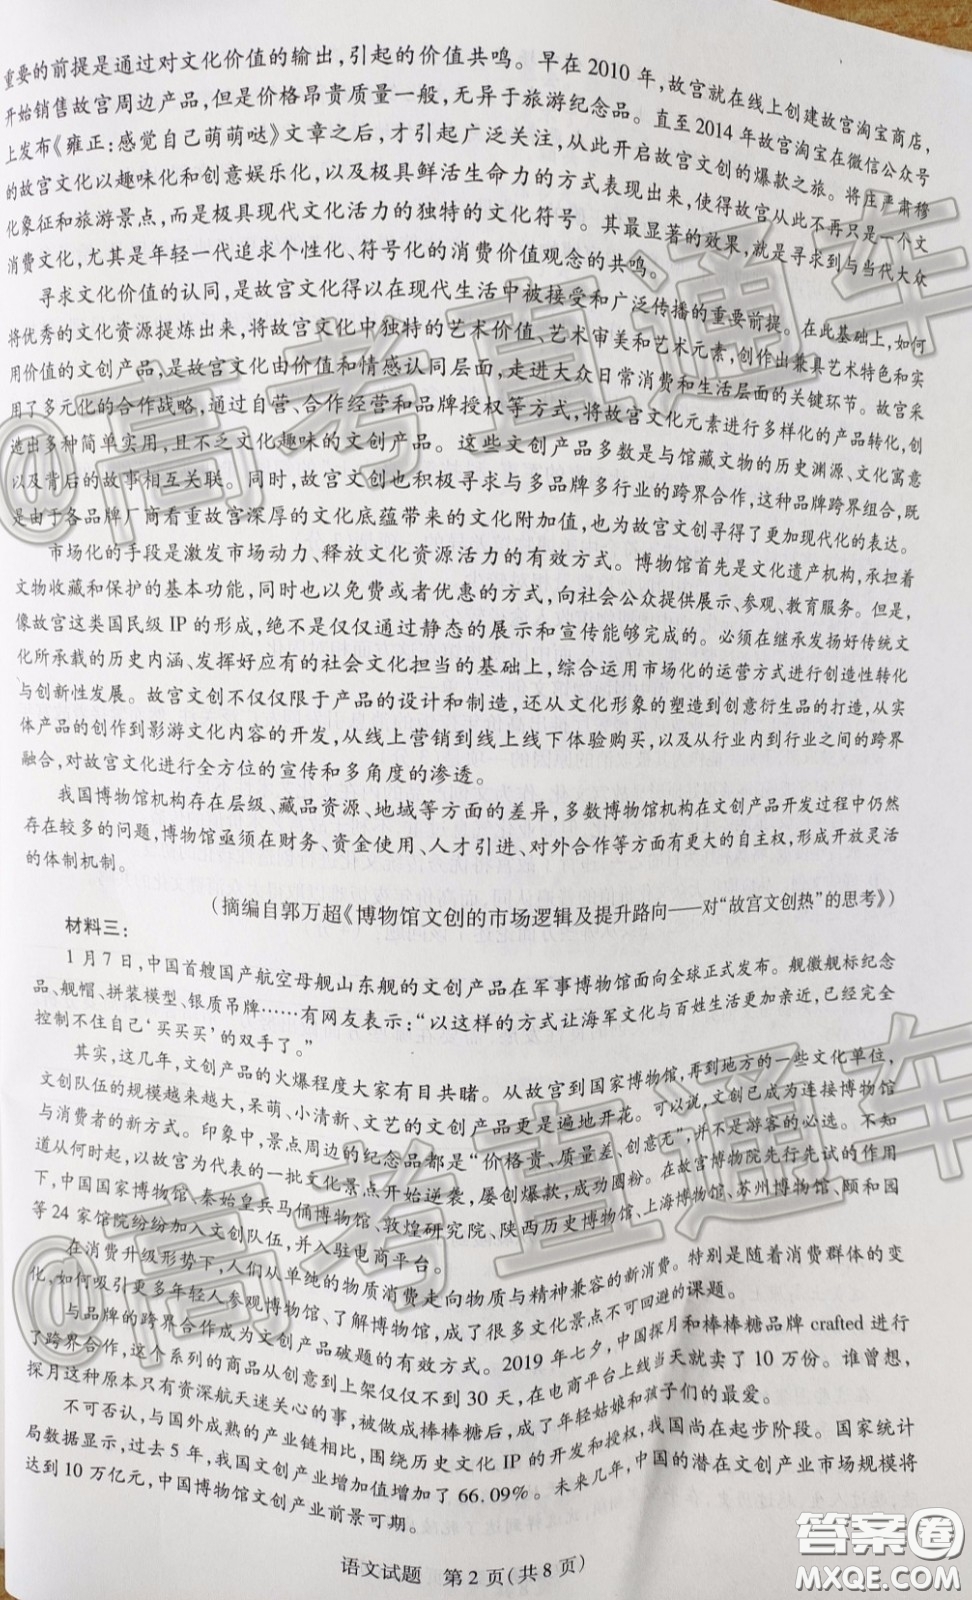 重要的前提是通过对文化价值的输出,引起的价值共鸣。早在 2010 年,故宫就在线上创建故宫淘宝商店,
开始销售故宫周边产品,但是价格昂贵质量一般,无异于旅游纪念品。直至 2014 年故宫淘宝在微信公众号
上发布《雍正:感觉自己萌萌哒》文章之后,才引起广泛关注,从此开启故宫文创的爆款之旅。将庄严肃穆
的故宫文化以趣味化和创意娱乐化,以及极具鲜活生命力的方式表现出来,使得故宫从此不再只是一个文
化象征和旅游景点,而是极具现代文化活力的独特的文化符号。其最显著的效果,就是寻求到与当代大众
消费文化,尤其是年轻一代追求个性化、符号化的消费价值观念的共鸣。
寻求文化价值的认同,是故宫文化得以在现代生活中被接受和广泛传播的重要前提。在此基础上,如何
将优秀的文化资源提炼出来,将故宫文化中独特的艺术价值、艺术审美和艺术元素,创作出兼具艺术特色和实
用价值的文创产品,是故宫文化由价值和情感认同层面,走进大众日常消费和生活层面的关键环节。故宫采
用了多元化的合作战略,通过自营、合作经营和品牌授权等方式,将故宫文化元素进行多样化的产品转化,创
造出多种简单实用,且不乏文化趣味的文创产品。这些文创产品多数是与馆藏文物的历史渊源、文化寓意
以及背后的故事相互关联。同时,故宫文创也积极寻求与多品牌多行业的跨界合作,这种品牌跨界组合,既
是由于各品牌厂商看重故宫深厚的文化底蕴带来的文化附加值,也为故宫文创寻得了更加现代化的表达。
市场化的手段是激发市场动力、释放文化资源活力的有效方式。博物馆首先是文化遗产机构,承担着
文物收藏和保护的基本功能,同时也以免费或者优惠的方式,向社会公众提供展示、参观、教育服务。但是,
像故宫这类国民级 IP 的形成,绝不是仅仅通过静态的展示和宣传能够完成的。必须在继承发扬好传统文
化所承载的历史内涵、发挥好应有的社会文化担当的基础上,综合运用市场化的运营方式进行创造性转化
与创新性发展。故宫文创不仅仅限于产品的设计和制造,还从文化形象的塑造到创意衍生品的打造,从实
体产品的创作到影游文化内容的开发,从线上营销到线上线下体验购买,以及从行业内到行业之间的跨界
融合,对故宫文化进行全方位的宣传和多角度的渗透。
我国博物馆机构存在层级、藏品资源、地域等方面的差异,多数博物馆机构在文创产品开发过程中仍然
存在较多的问题,博物馆亟须在财务、资金使用、人才引进、对外合作等方面有更大的自主权,形成开放灵活
的体制机制。
(摘编自郭万超《博物馆文创的市场逻辑及提升路向——对“故宫文创热”的思考》)
材料三:
1 月 7 日,中国首艘国产航空母舰山东舰的文创产品在军事博物馆面向全球正式发布。舰徽舰标纪念
品、舰帽、拼装模型、银质吊牌……有网友表示:“以这样的方式让海军文化与百姓生活更加亲近,已经完全
控制不住自己‘买买买’的双手了。”
其实,这几年,文创产品的火爆程度大家有目共睹。从故宫到国家博物馆,再到地方的一些文化单位,
文创队伍的规模越来越大,呆萌、小清新、文艺的文创产品更是遍地开花。可以说,文创已成为连接博物馆
与消费者的新方式。印象中,景点周边的纪念品都是“价格贵、质量差、创意无”,并不是游客的必选。不知
道从何时起,以故宫为代表的一批文化景点开始逆袭,屡创爆款,成功圈粉。在故宫博物院先行先试的作用
下,中国国家博物馆、秦始皇兵马俑博物馆、敦煌研究院、陕西历史博物馆、上海博物馆、苏州博物馆、颐和园
等 24 家馆院纷纷加入文创队伍,并入驻电商平台。
在消费升级形势下,人们从单纯的物质消费走向物质与精神兼容的新消费。特别是随着消费群体的变
化,如何吸引更多年轻人参观博物馆、了解博物馆,成了很多文化景点不可回避的课题。
与品牌的跨界合作成为文创产品破题的有效方式。2019 年七夕,中国探月和棒棒糖品牌 crafted 进行
了跨界合作,这个系列的商品从创意到上架仅仅不到 30 天,在电商平台上线当天就卖了 10 万份。谁曾想,
探月这种原本只有资深航天迷关心的事,被做成棒棒糖后,成了年轻姑娘和孩子们的最爱。
不可否认,与国外成熟的产业链相比,围绕历史文化 IP 的开发和授权,我国尚在起步阶段。国家统计
局数据显示,过去 5 年,我国文创产业增加值增加了 66.09%。未来几年,中国的潜在文创产业市场规模将
达到 10 万亿元,中国博物馆文创产业前景可期。
语文试题 第 2 页(共 8 页)
@高考直通车
@高考直通车
答案圈
MXQE.COM